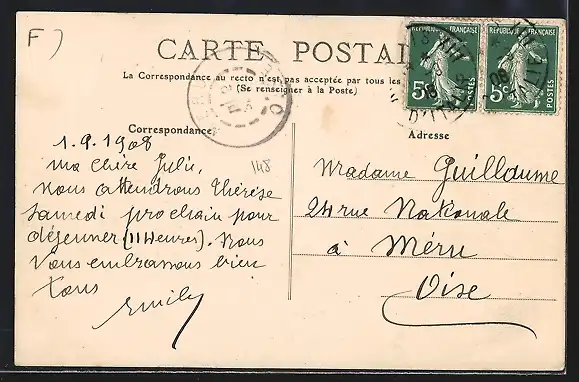 F)
CARTE POSTAL
La Correspondance au recto n'est pas acceptée par tous les
(Se renseigner à la Poste)
REPUBLIQUE FRANÇAISE
5c
POSTES
REPUBLIQUE FRANÇAISE
5c
POSTES
Correspondance
1.9.1908
148
Ma chère Julie,
Nous attendrons Thérèse
samedi prochain pour
déjeuner (11 Heures). Nous
Vous embrassons bien
Tous
Emily
Adresse
Madame Guillaume
24 rue Nationale
à Méru
Oise